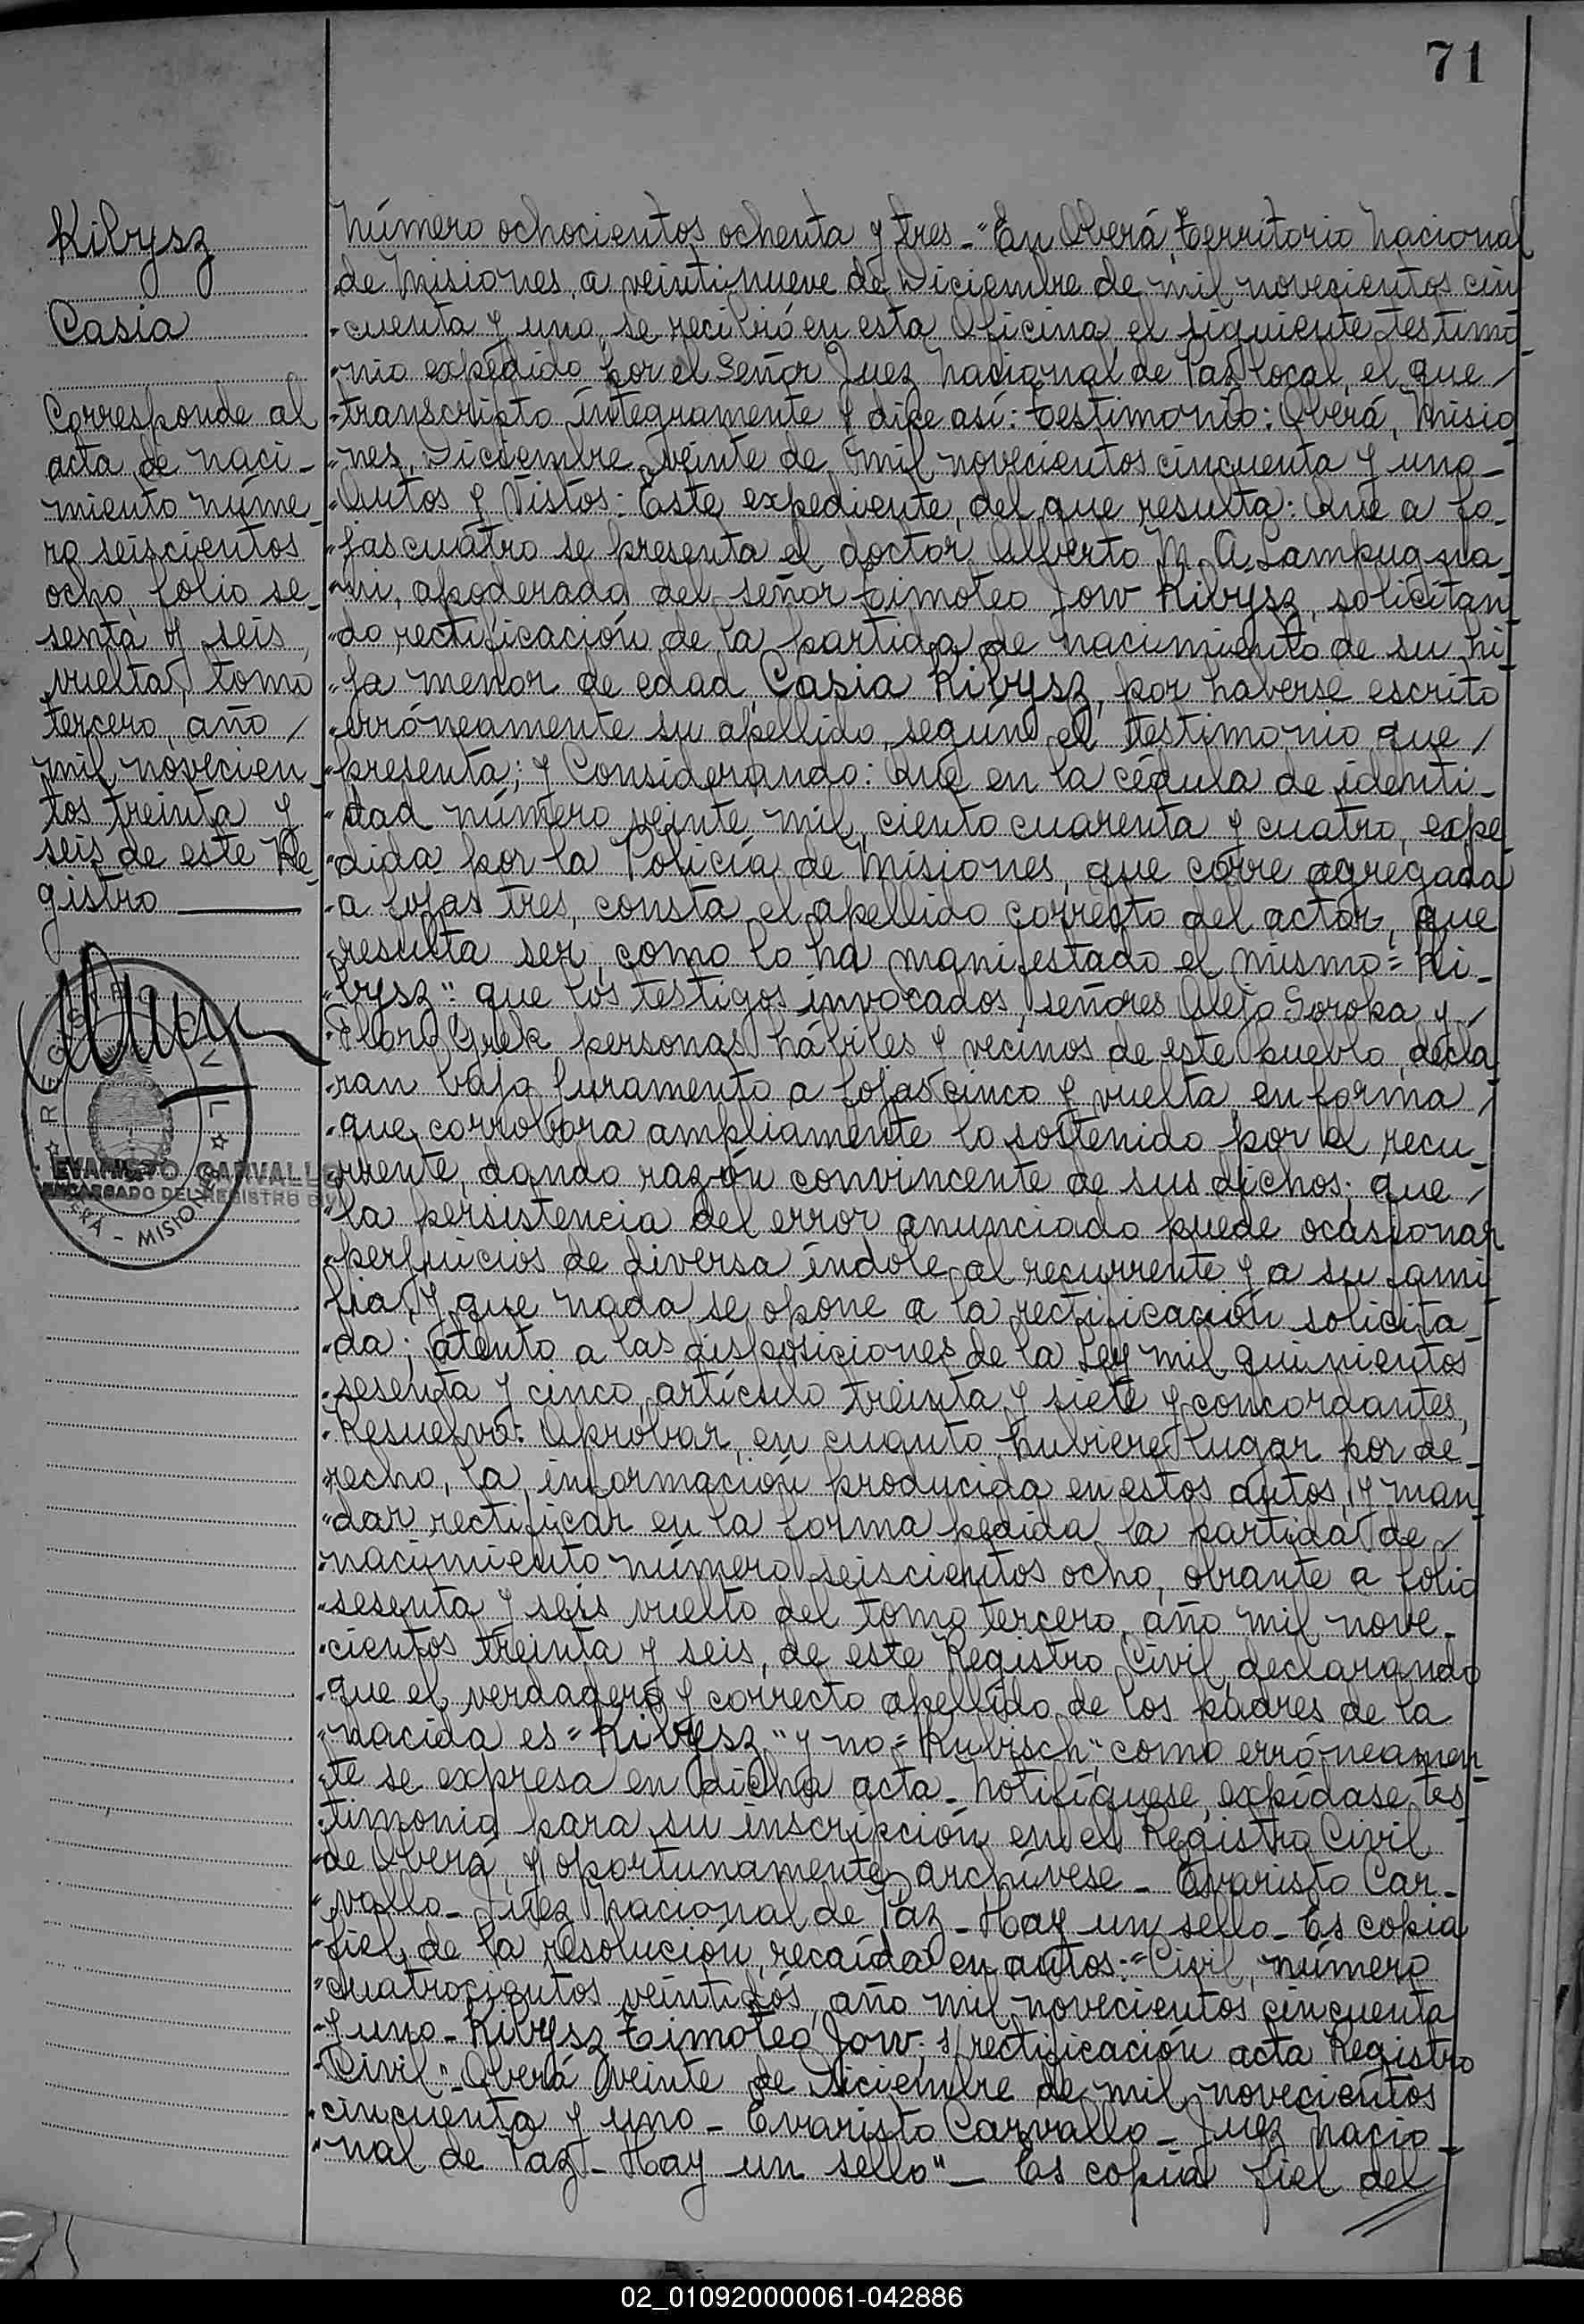 71
Kibysz
Casia
Corresponde al
acta de naci-
miento núme-
ro seiscientos
ocho, folio se-
senta y seis,
vuelta, tomo
tercero, año /
mil novecien-
tos treinta y
seis de este Re-
gistro
REGISTRO CIVIL
EVARISTO CARVALLO
ENCARGADO DEL REGISTRO CIVIL
OBERÁ - MISIONES
Número ochocientos ochenta y tres.- "En Oberá, Territorio Nacional
"de Misiones, a veintinueve de Diciembre de mil novecientos cin
"cuenta y uno, se recibió en esta Oficina, el siguiente testimo-
"nio expedido por el Señor Juez Nacional de Paz local, el que /
"transcripto íntegramente y dice así: Testimonio: Oberá, Misio
"nes, Diciembre veinte de mil novecientos cincuenta y uno-
"Autos y Vistos: Este expediente, del que resulta: Que a fo-
"jas cuatro se presenta el doctor Alberto M. A. Lampugna
"ni, apoderado del señor Timoteo Jow Kibysz, solicitan
"do rectificación de la partida de nacimiento de su hi
"ja menor de edad, Casia Kibysz, por haberse escrito
"erróneamente su apellido, según el testimonio que /
"presenta; y Considerando: Que en la cédula de identi-
"dad número veinte mil ciento cuarenta y cuatro, expe
"dida por la Policía de Misiones, que corre agregada
"a fojas tres, consta el apellido correcto del actor, que
"resulta ser, como lo ha manifestado el mismo = Ki-
"bysz"; que los testigos invocados, señores Alejo Soroka y /
"Floro Grek, personas hábiles y vecinos de este pueblo, decla
"ran bajo juramento a fojas cinco y vuelta, en forma /
"que corrobora ampliamente lo sostenido por el recu-
"rrente, dando razón convincente de sus dichos; que /
"la persistencia del error anunciado puede ocasionar
"perjuicios de diversa índole al recurrente y a su fami
"lia, y que nada se opone a la rectificación solicita-
"da; atento a las disposiciones de la Ley mil quinientos
"sesenta y cinco, artículo treinta y siete y concordantes,
"Resuelvo: Aprobar, en cuanto hubiere lugar por de-
"recho, la información producida en estos autos, y man
"dar rectificar en la forma pedida la partida de /
"nacimiento número seiscientos ocho, obrante a folio
"sesenta y seis vuelto del tomo tercero, año mil nove-
"cientos treinta y seis, de este Registro Civil, declarando
"que el verdadero y correcto apellido de los padres de la
"nacida es = Kibysz" y no = Kubisch", como erróneamen-
"te se expresa en dicha acta.- Notifíquese, expídase tes
"timonio para su inscripción en el Registro Civil
"de Oberá, y oportunamente archívese - Evaristo Car-
"vallo - Juez Nacional de Paz - Hay un sello - Es copia
"fiel de la resolución recaída en autos: = Civil, número
"cuatrocientos veintidós, año mil novecientos cincuenta
"y uno - Kibysz Timoteo Jow; s/ rectificación acta Registro
"Civil"- Oberá, veinte de Diciembre de mil novecientos
"cincuenta y uno - Evaristo Carvallo - Juez Nacio-
"nal de Paz - Hay un sello"- Es copia fiel del
02_010920000061-042886